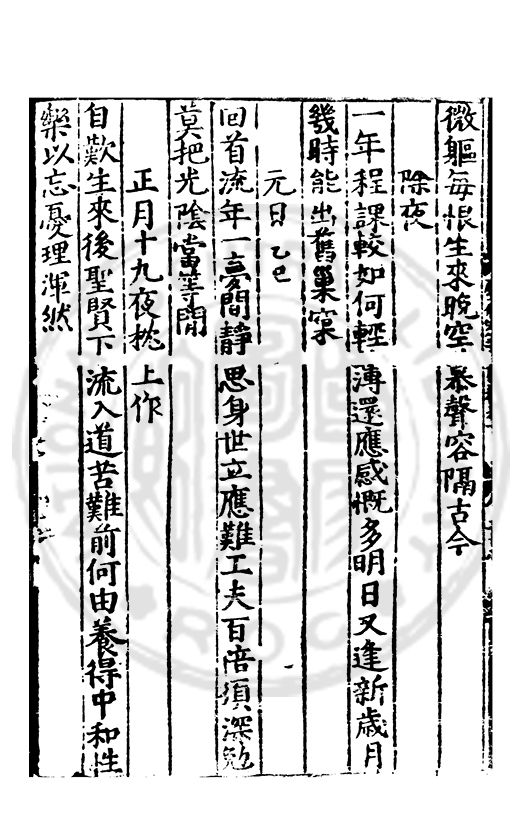 微軀每恨生來晚空㮣聲容隔古今
除夜
一年程課較如何輕薄還應感慨多明日又逢新歲月
幾時能出舊巢窠
元日乙巳
回首流年一夢間靜思身世立應難工夫百倍須深勉
莫把光陰當等閒
正月十九夜枕上作
自歎生來後聖賢下流入道苦難前何由養得中和性
樂以忘憂理渾然